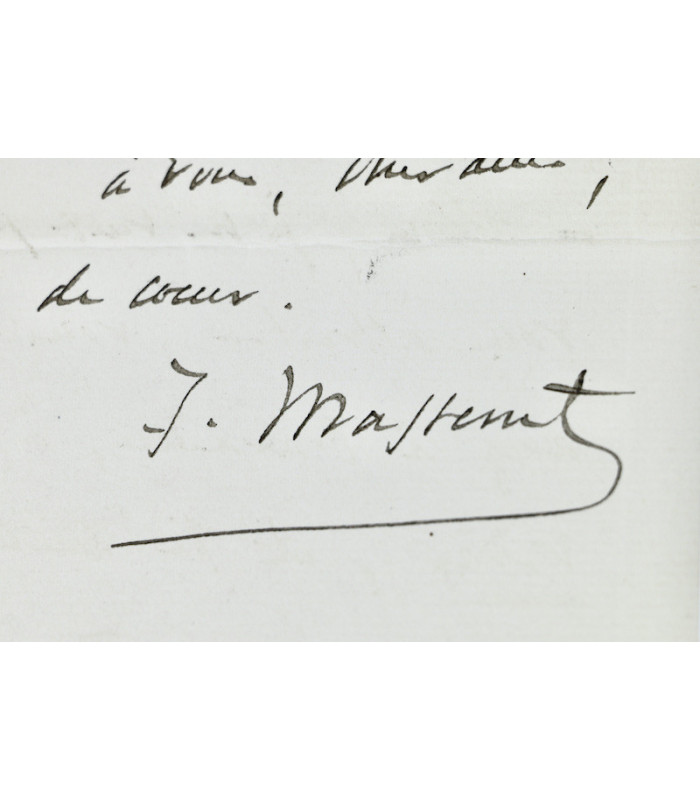 à vous, cher ami,
de coeur.
J. Massenet